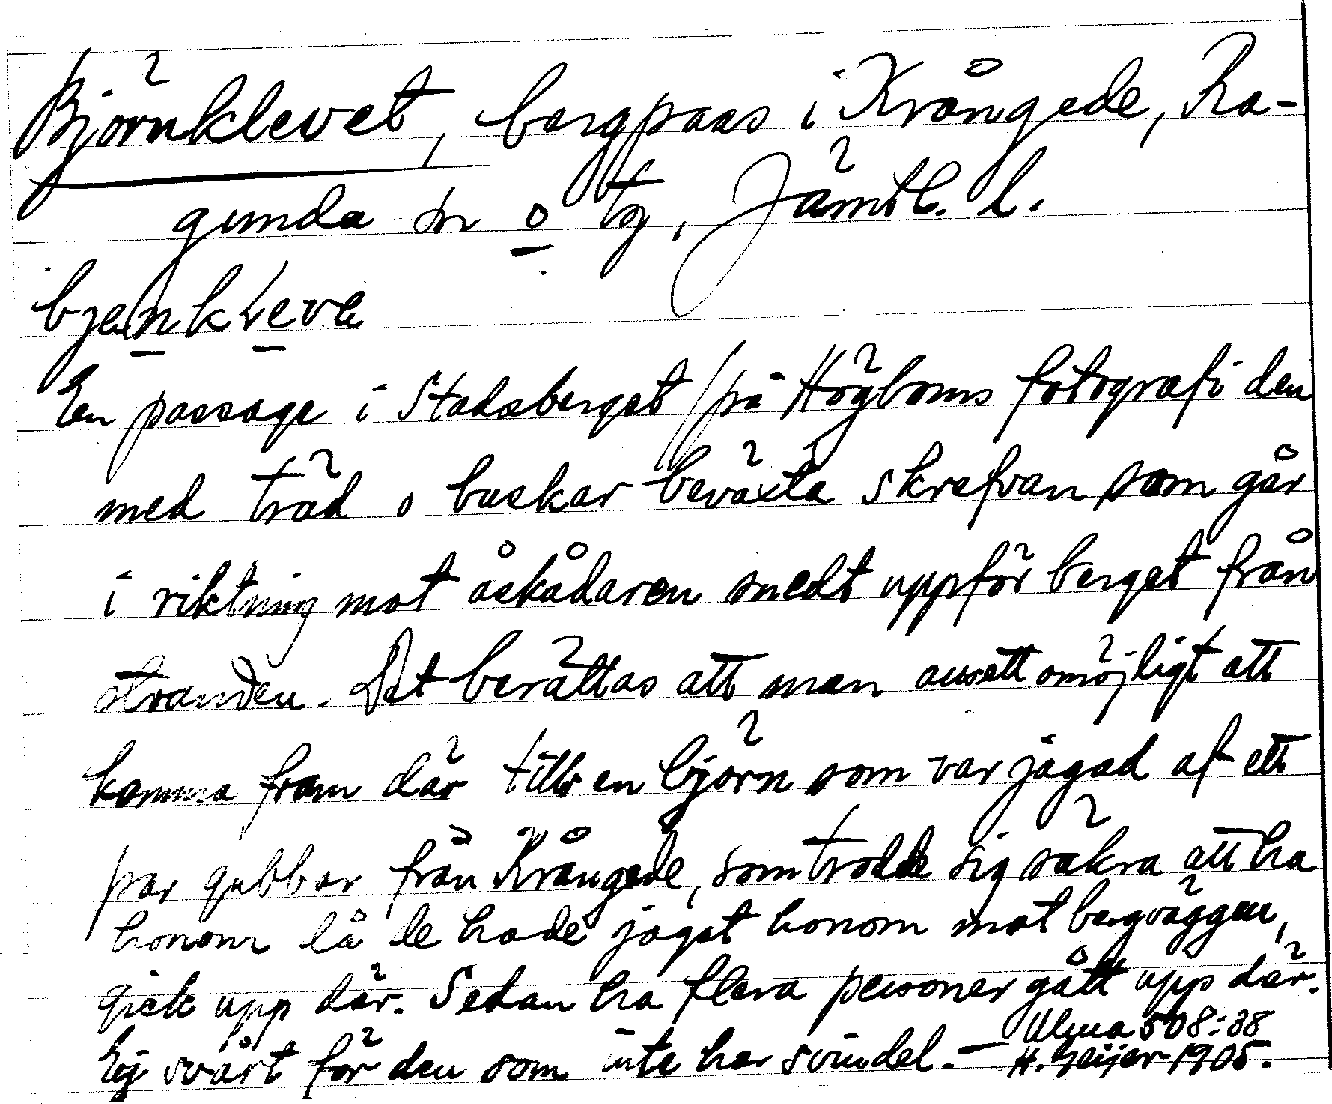 Björnklevet, bergpass i Krångede, Ra-
gunda sn o tg, Jämtl. l.
bjenkleve
En passage i Stadsberget /på Högboms fotografi den
med träd o buskar beväxta skrefvan som går
i riktning mot åskådaren snedt uppför berget från
stranden. Det berättas att man ansett omöjligt att
komma fram där tills en björn som var jagad af ett
par gubbar från Krångede, som trodde sig säkra att ha
honom då de hade jagat honom mot bergväggen,
gick upp där. Sedan ha flera personer gått upp där.
Ej svårt för den som inte har svindel. – Ulma 508:38
H. Geijer 1905.